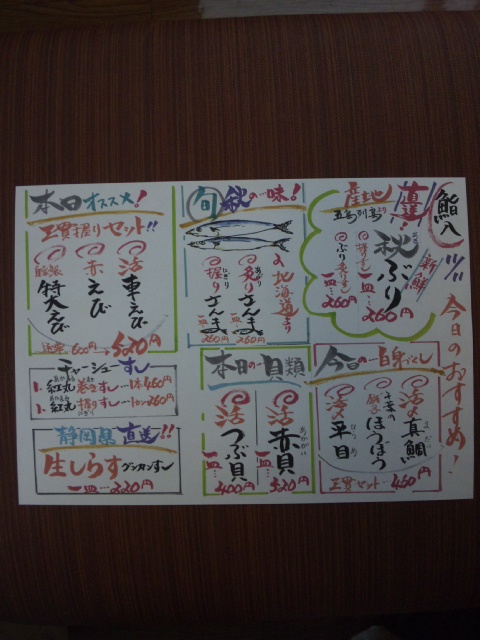 鮨八
11/11
今日のおすすめ！
産地直送！
五島列島より
秋ぶり
新鮮
握りずし
一皿…260円
ぶり炙りずし
一皿…260円
旬 秋の…味！
北海道より
炙りさんま
あぶり
一皿 260円
握りさんま
にぎり
一皿 260円
本日オススメ！
三貫握りセット!!
活車えび
赤えび
特大えび
通常 600円→520円
チャーシューすし
1. 紅丸巻きずし…一本460円
1. 紅丸握りずし…1カン260円
静岡県直送!!
生しらすグンカンずし
一皿…220円
本日の…貝類
活赤貝
あかがい
一皿…520円
活つぶ貝
一皿…400円
今日の…白身づくし
活〆真鯛
まだい
千葉の銚子
ほうぼう
活〆平目
ひらめ
三貫セット…460円